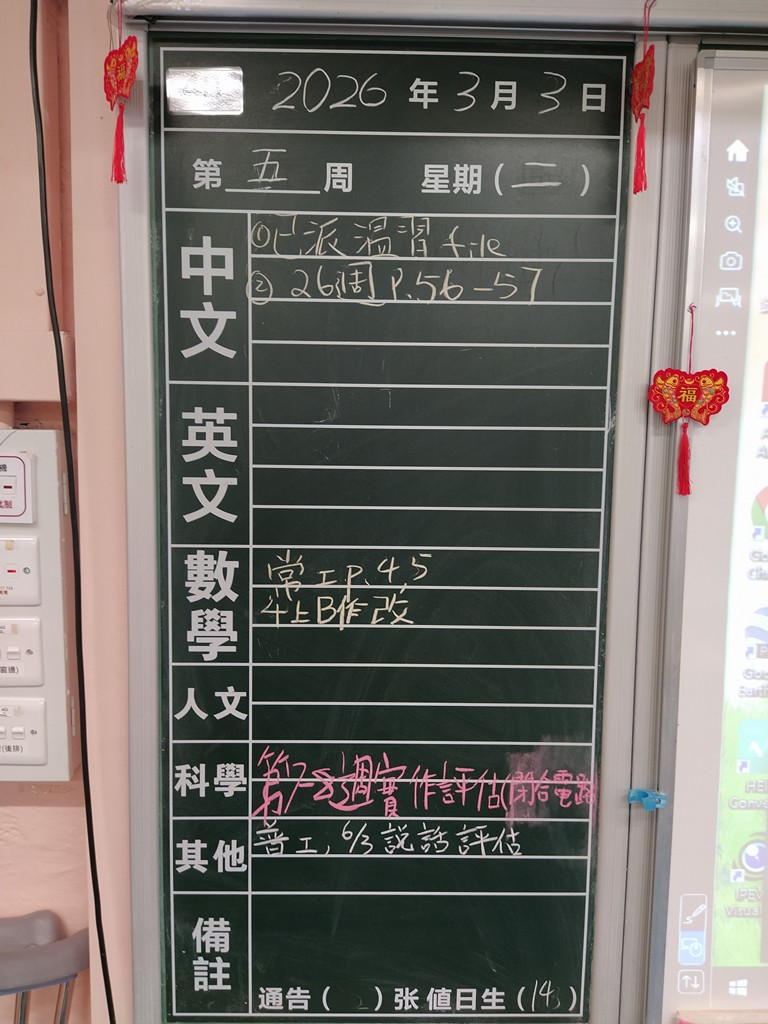 福
2026 年 3 月 3 日
第 五 周 星期 ( 二 )
中文
①已派溫習 file
② 26週 P.56-57
英文
數學
常工p.4,5
4上B作改
人文
科學
第7-8週實作評估(閉合電路
其他
普工, 6/3 說話評估
備註
通告 ( ) 张 值日生 ( 14 )
福